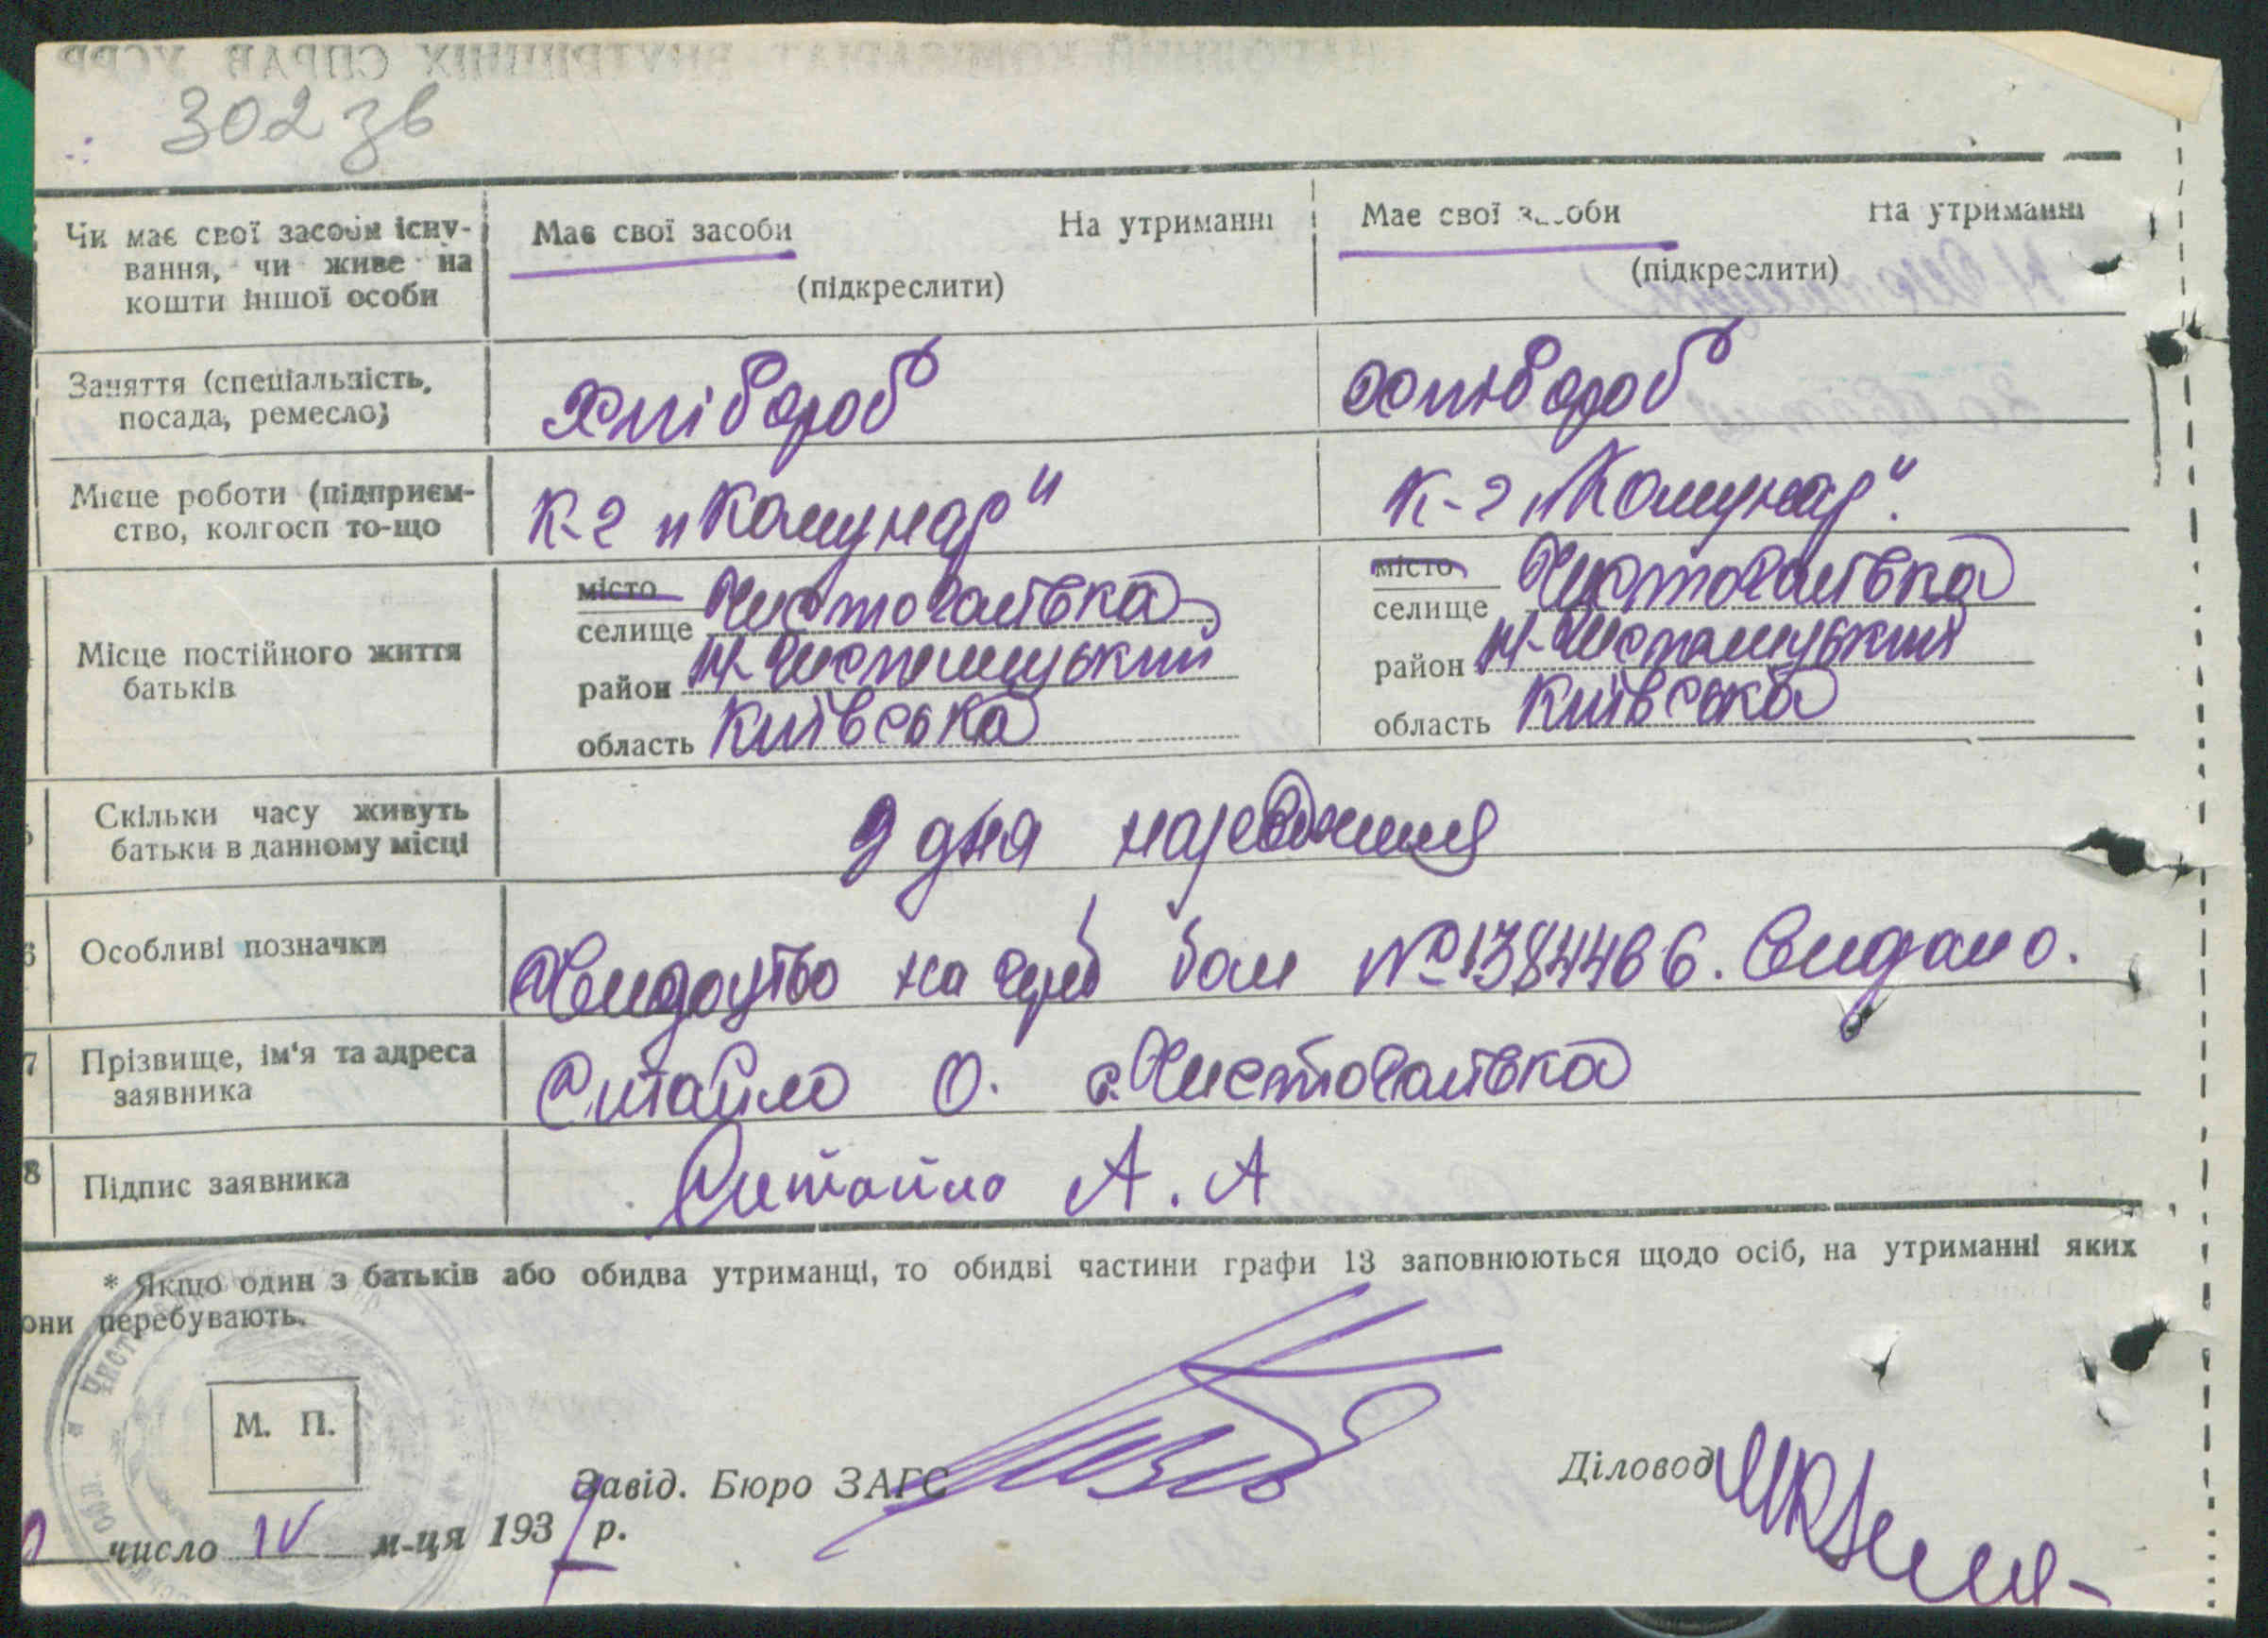 НАРОДНИЙ КОМІСАРІАТ ВНУТРІШНІХ СПРАВ УСРР
302 зв
Чи має свої засоби існу-
вання, чи живе на
кошти іншої особи
Має свої засоби На утриманні
(підкреслити)
Має свої засоби На утриманні
(підкреслити)
Заняття (спеціальність,
посада, ремесло)
Хлібороб
Хлібороб
Місце роботи (підприєм-
ство, колгосп то-що
К-г „Комунар"
К-г „Комунар".
Місце постійного життя
батьків
місто
селище Чистогалівка
район Н-Шепелицький
область Київська
місто
селище Чистогалівка
район Н-Шепелицький
область Київська
5 Скільки часу живуть
батьки в данному місці
З дня народження
6 Особливі позначки
на бол № 1384466. Видано.
7 Прізвище, ім'я та адреса
заявника
Ситайло О. с. Чистогалівка
8 Підпис заявника
Ситайло А. А
* Якщо один з батьків або обидва утриманці, то обидві частини графи 13 заповнюються щодо осіб, на утриманні яких
они перебувають.
М. П.
Завід. Бюро ЗАГС
Діловод
число IV м-ця 1937 р.